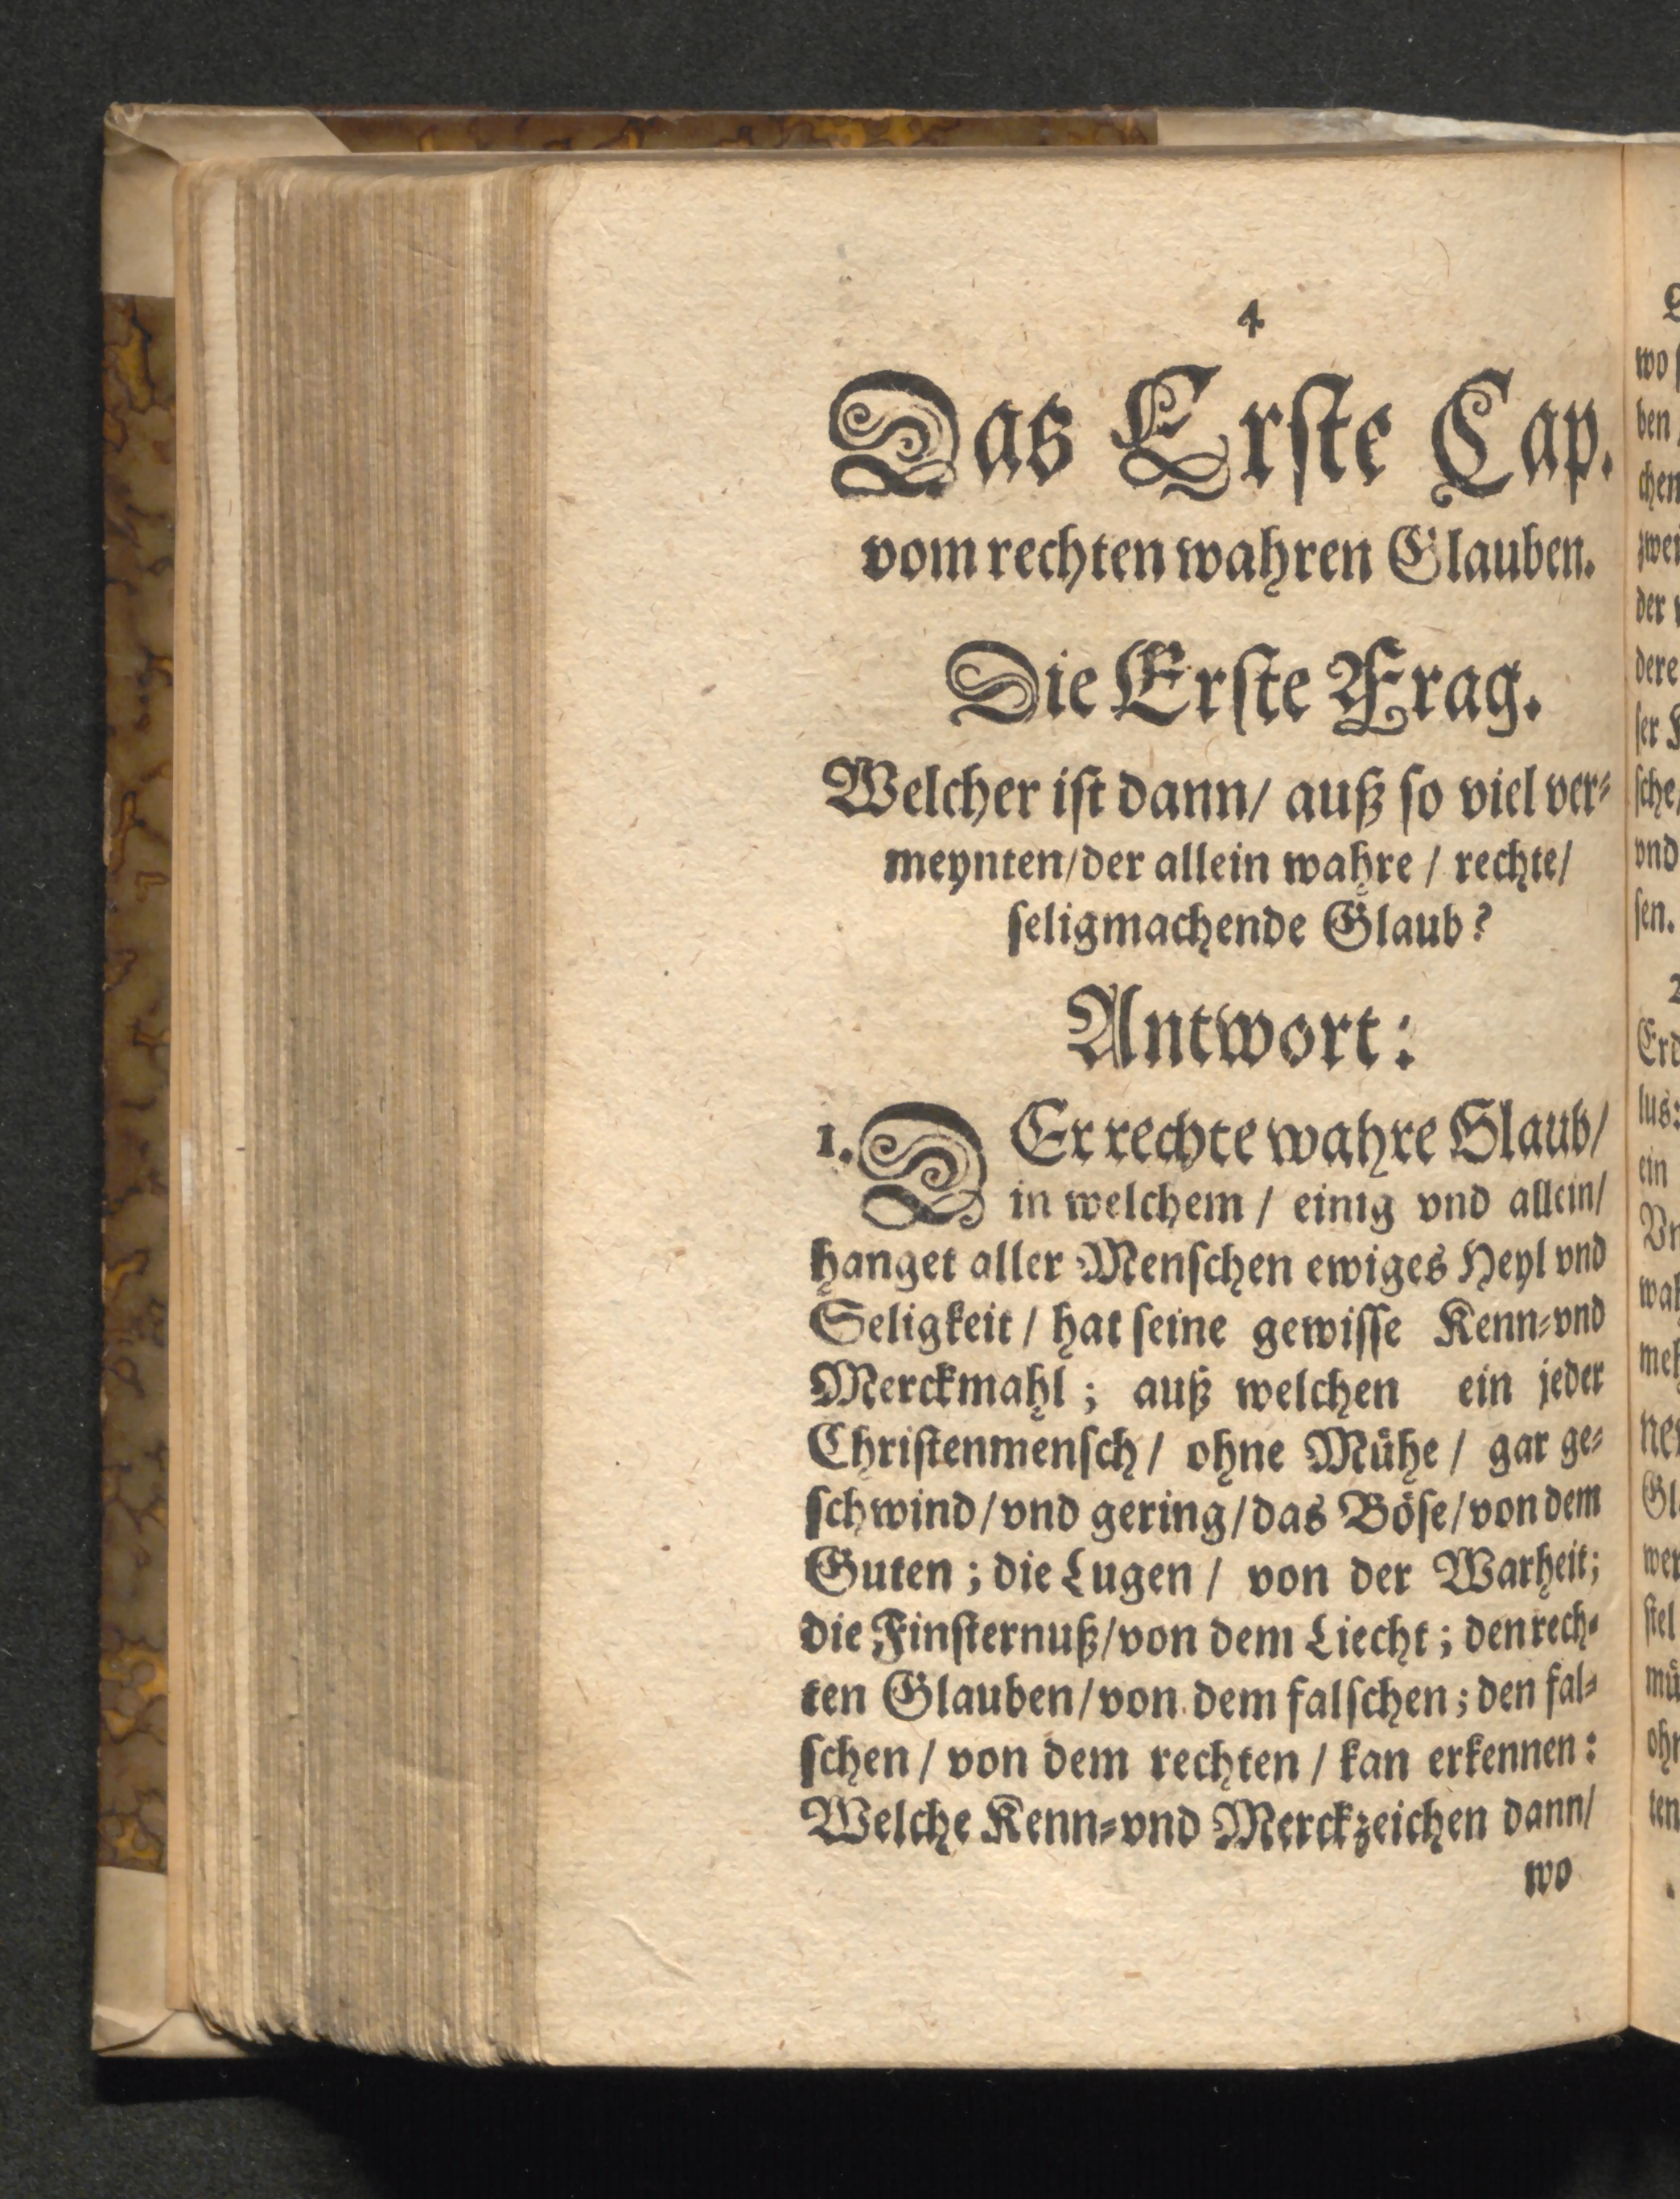 4
Das Erste Cap.
vom rechten wahren Glauben.
Die Erste Frag.
Welcher ist dann/ auß so viel ver-
meynten/der allein wahre / rechte/
seligmachende Glaub?
Antwort:
1. DEr rechte wahre Glaub/
in welchem / einig vnd allein/
hanget aller Menschen ewiges Heyl vnd
Seligkeit / hat seine gewisse Kenn-vnd
Merckmahl ; auß welchen ein jeder
Christenmensch / ohne Mühe / gar ge-
schwind/vnd gering/das Böse/von dem
Guten ; die Lugen / von der Warheit;
die Finsternuß/von dem Liecht ; den rech-
ten Glauben/von dem falschen ; den fal-
schen / von dem rechten / kan erkennen :
Welche Kenn-vnd Merckzeichen dann/
wo